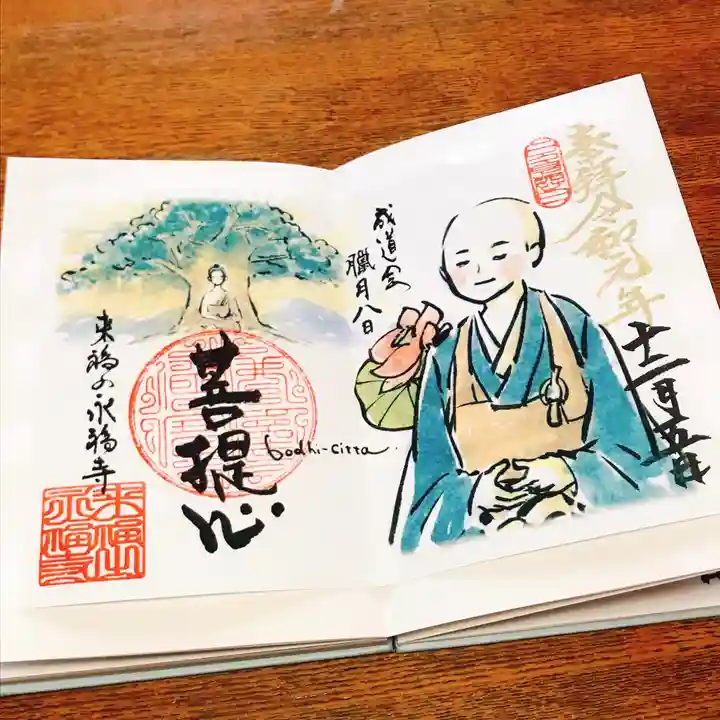 奉拝 令和元年
十二月五日
成道会
臘月八日
菩提心
bodhi-citta
来福の永福寺
来福山
永福寺